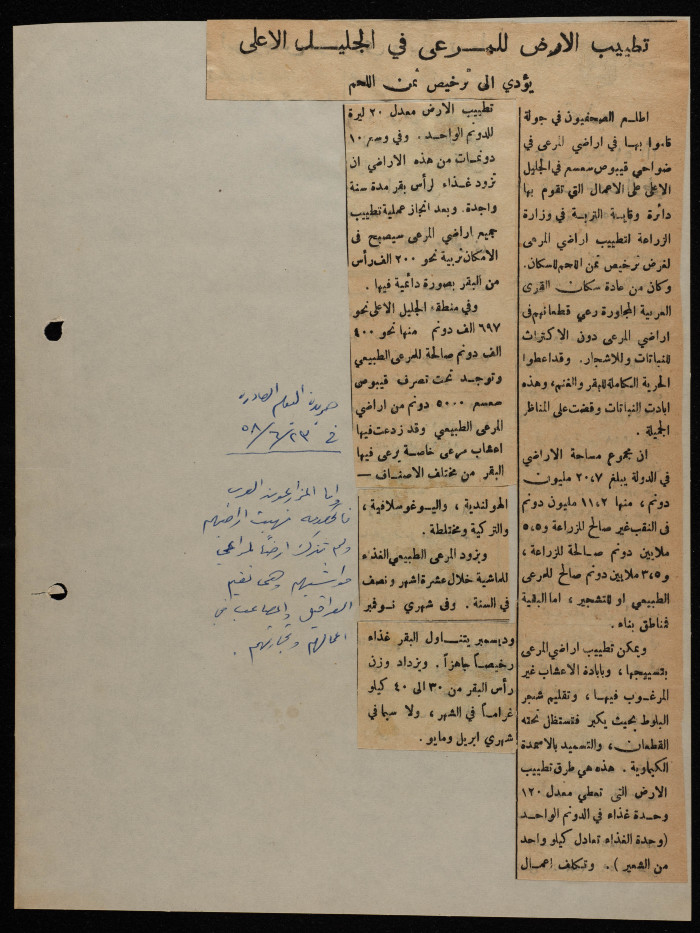 تطبيب الارض للمـــرعى في الجليـــل الاعلى
يؤدي الى ترخيص ثمن اللحم
اطلــع الصحفيون في جولة
قاموا بهــا في اراضي المرعى في
ضواحي قيبوص سعسع في الجليل
الاعلى على الاعمال التي تقوم بها
دائرة وقايــة التربــة في وزارة
الزراعة لتطبيب اراضي المرعى
لغرض ترخيص ثمن اللحم للسكان.
وكان من عادة سكان القرى
العربية المجاورة رعي قطعانهم في
اراضي المرعى دون الاكتراث
للنباتات وللاشجار . وقد اعطوا
الحرية الكاملة للبقر والغنم، وهذه
ابادت النباتات وقضت على المناظر
الجميلة .
ان مجموع مساحة الاراضي
في الدولة يبلغ ٢٠،٧ مليون
دونم ، منها ١١،٢ مليون دونم
في النقب غير صالح للزراعة و٥،٥
ملايين دونم صــالحة للزراعة ،
و٣،٥ ملايين دونم صالح للمرعى
الطبيعي او للتشجير ، اما البقية
فمناطق بناء .
ويمكن تطبيب اراضي المرعى
بتسييجها ، وبابادة الاعشاب غير
المرغــوب فيهــا ، وتقليم شجر
البلوط بحيث يكبر فتستظل تحته
القطعان ، والتسميد بالاسمدة
الكيماوية . هذه هي طرق تطبيب
الارض التي تعطي معدل ١٢٠
وحــدة غذاء في الدونم الواحــد
(وحدة الغذاء تعادل كيلو واحد
من الشعير ) . وتكلف اعمــال
تطبيب الارض معدل ٢٠ ليرة
للدونم الواحــد . وفي وسع ١٠
دونمــات من هذه الاراضي ان
تزود غذاء لرأس بقر مدة سنة
واحدة. وبعد انجاز عملية تطبيب
جميع اراضي المرعى سيصبح في
الامكان تربية نحو ٢٠٠ الف رأس
من البقر بصورة دائمية فيها .
وفي منطقة الجليل الاعلى نحو
٦٩٧ الف دونم منها نحو ٤٠٠
الف دونم صالحة للمرعى الطبيعي
وتوجــد تحت تصرف قيبوص
سعسع ٥٠٠٠ دونم من اراضي
المرعى الطبيعي وقد زرعت فيها
اعشاب مرعى خاصة يرعى فيها
البقر من مختلف الاصنــاف —
الهولندية ، واليــوغوسلافية ،
والتركية ومختلطة .
ويزود المرعى الطبيعي الغذاء
للماشية خلال عشرة اشهر ونصف
في السنة . وفي شهري نــوفمبر
وديسمبر يتنــاول البقر غذاء
رخيصــاً جاهزاً . ويزداد وزن
رأس البقر من ٣٠ الى ٤٠ كيلو
غرامــاً في الشهر ، ولا سيما في
شهري ابريل ومايو .
جريدة اليوم الصادرة
في ٢٣/٦/٥٨
واما المزارعون العرب
فالحكومة نهبت اراضيهم
ولم تترك ارضاً لمراعي
مواشيهم وهي تقيم
العراقيل والمصاعب في
اعمالهم وتجارتهم .